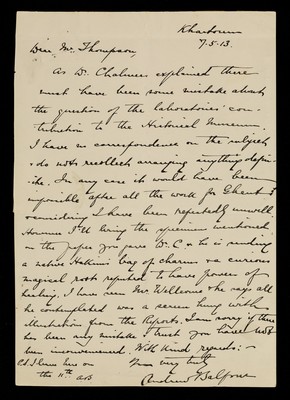 Khartoum
7.5.13.
Dear Mr. Thompson,
As Dr. Chalmers explained there
must have been some mistake about
the question of the laboratories' con-
tribution to the Historical Museum.
I have no correspondence on the subject
& do not recollect arranging anything defin-
ite. In any case it would have been
impossible after all the work for Ghent &
considering I have been repeatedly unwell.
However I'll bring the specimens mentioned
on the paper you gave Dr. C. & he is sending
a native Hakim's bag of charms & a curious
magical root reputed to have powers of
healing. I have seen Mr. Wellcome who says all
he contemplated was a screen hung with
illustrations from the Reports. I am sorry if there
has been any mistake & trust you have not
been inconvenienced. With kind regards:-
Yours very truly
Andrew Balfour
P.S. I leave here on
the 11th